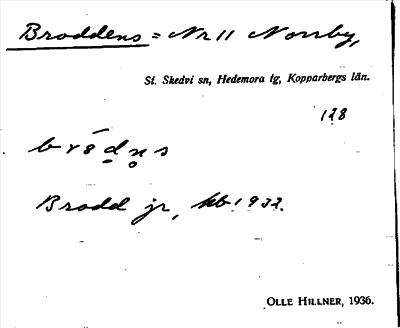 Broddens = Nr 11 Norrby,
St. Skedvi sn, Hedemora tg, Kopparbergs län.
128
Brodd jr, hb. 1932.
OLLE HILLNER, 1936.